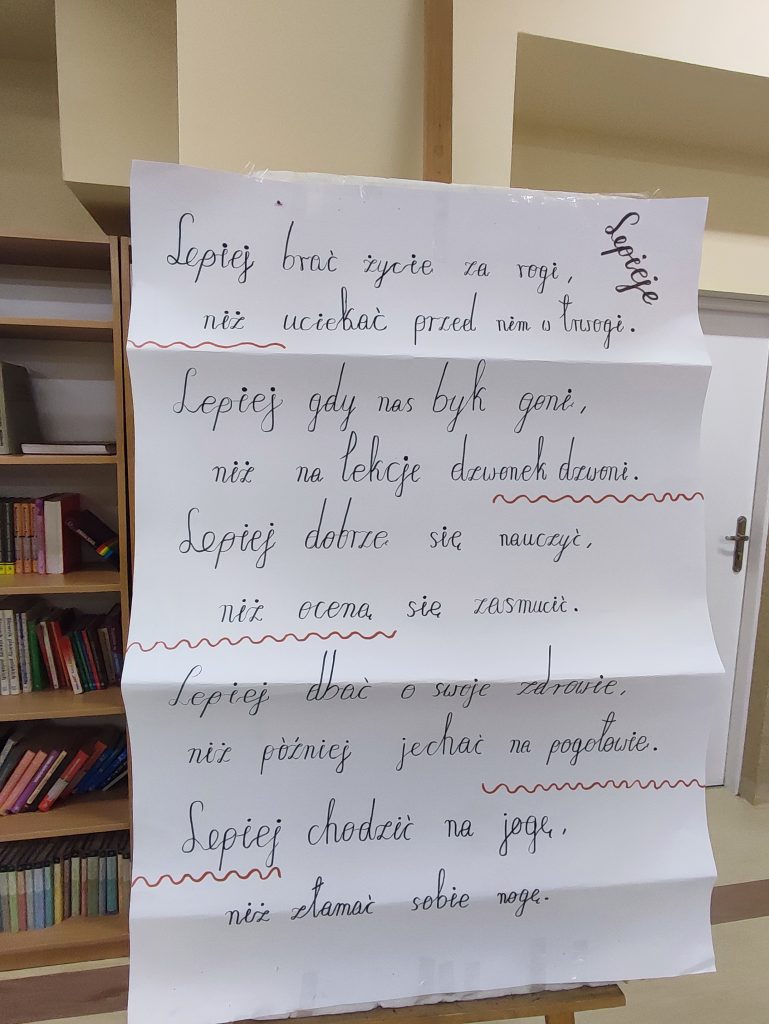 Lepieje
Lepiej brać życie za rogi,
niż uciekać przed nim w trwogi.
Lepiej gdy nas byk goni,
niż na lekcje dzwonek dzwoni.
Lepiej dobrze się nauczyć,
niż oceną się zasmucić.
Lepiej dbać o swoje zdrowie,
niż później jechać na pogotowie.
Lepiej chodzić na jogę,
niż złamać sobie nogę.